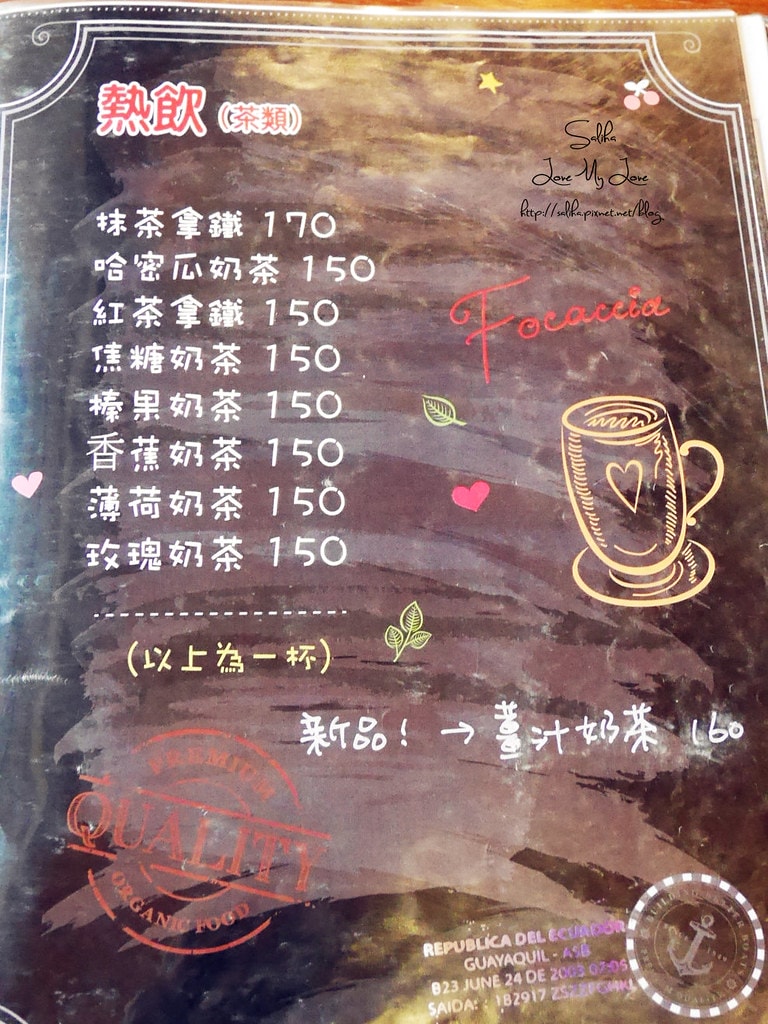 熱飲（茶類）
Saliha
Love My Love
http://saliha.pixnet.net/blog
抹茶拿鐵 170
哈密瓜奶茶 150
紅茶拿鐵 150
焦糖奶茶 150
榛果奶茶 150
香蕉奶茶 150
薄荷奶茶 150
玫瑰奶茶 150
Focaccia
(以上為一杯)
新品! → 薑汁奶茶 160
PREMIUM
QUALITY
ORGANIC FOOD
REPUBLICA DEL ECUADOR
GUAYAQUIL - ASB
823 JUNE 24 DE 2003 07:05
SAIDA: : 182917